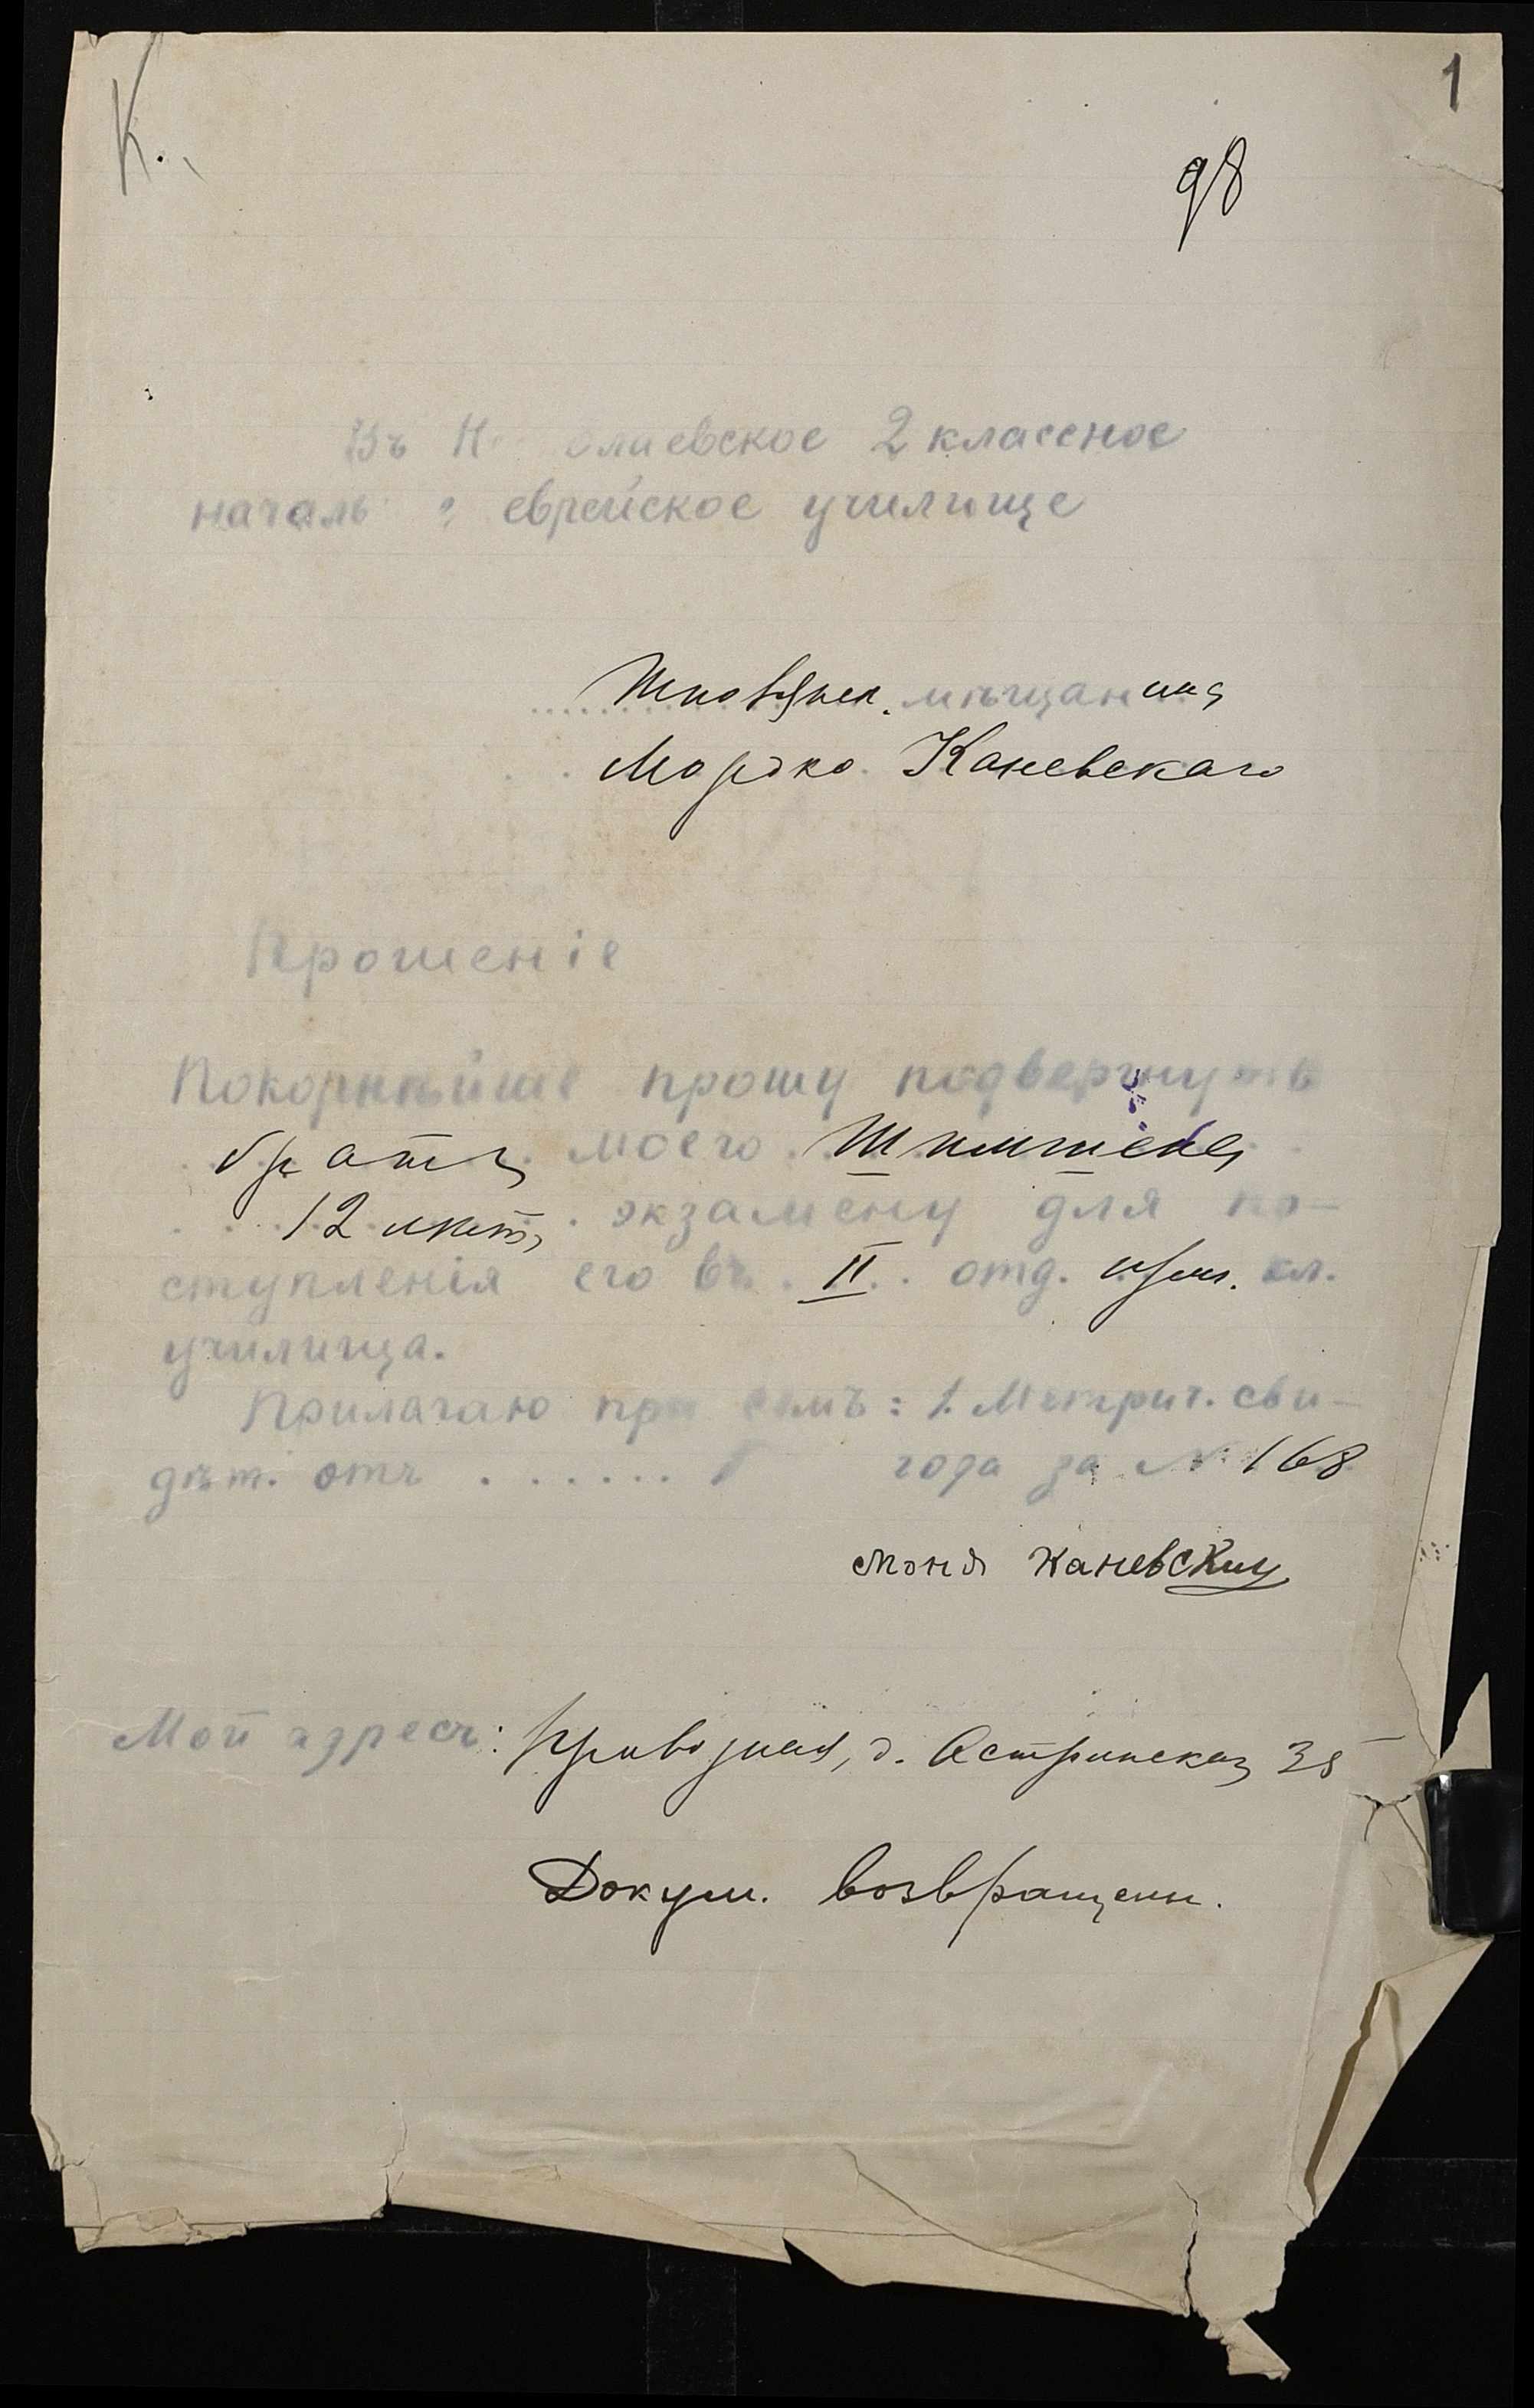 К.
1
98
Въ Н олаевское 2 классное
началь е еврейское училище
Шполянск. мѣщанина
Мордко Каневскаго
Прошеніе
Покорнѣйше прошу подвергнуть
брата моего Шимшена
12 лѣтъ экзамену для по-
ступленія его въ II отд. кл.
училища.
Прилагаю при семъ: 1. Метрич. сви-
дѣт. отъ ....... 1 года за № 168
Каневский
Мой адресъ: Привозная, д. Астринскаго 35
Докум. возвращены.